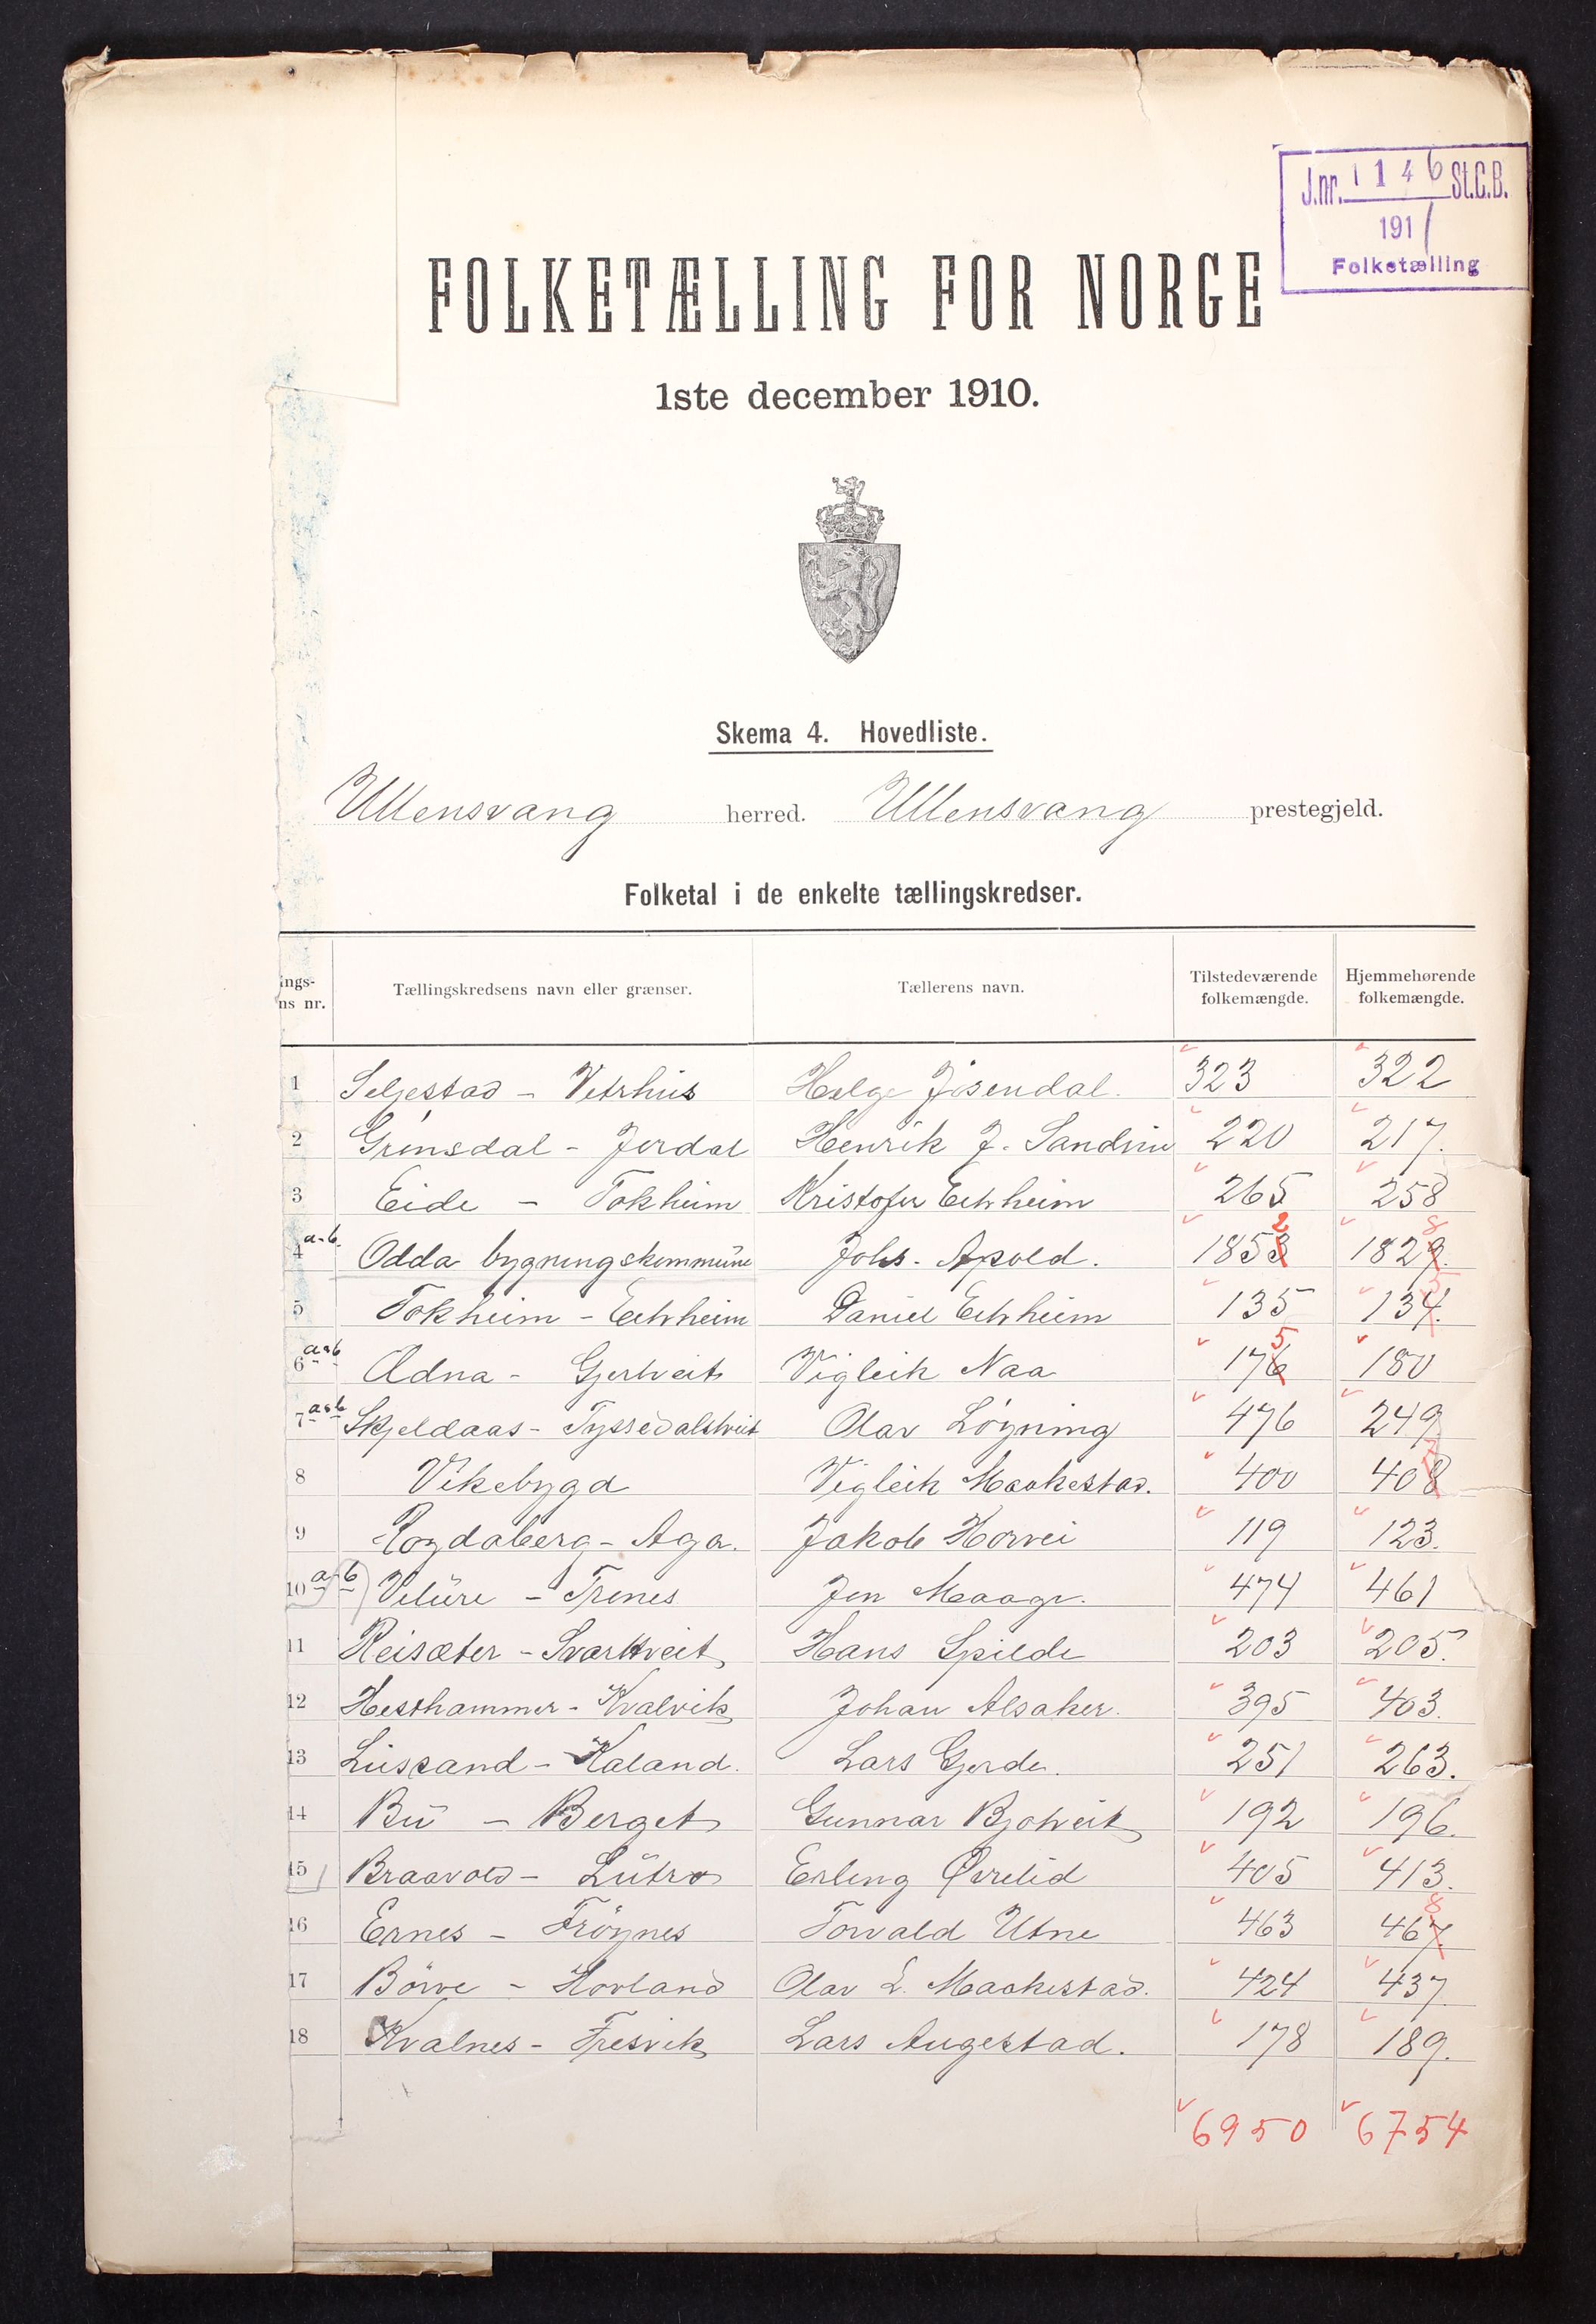 J.nr. 1146 St.C.B.
1911
Folketælling
FOLKETÆLLING FOR NORGE
1ste december 1910.
Skema 4. Hovedliste.
Ullensvang herred. Ullensvang prestegjeld.
Folketal i de enkelte tællingskredser.
ings-
ns nr. Tællingskredsens navn eller grænser. Tællerens navn. Tilstedeværende folkemængde. Hjemmehørende folkemængde.
1 Seljestad - Vetrhus Helge Jøsendal. 323 322
2 Grønsdal - Jordal Henrik J. Sandvin 220 217.
3 Eide - Tokheim Kristofer Eitrheim 265 258
4 a-b. Odda bygningskommune Johs. Apold. 1853 2 1829. 8
5 Tokheim - Eitrheim Daniel Eitrheim 135 134. 5
6 a-b Ædna - Gjertveit Vigleik Naa 176 5 180
7 a-b Skjeldaas - Tyssedalstveit Olav Løyning 476 249
8 Vikebygd Vigleik Maakestad. 400 408 7
9 Rogdaberg - Aga. Jakob Horvei 119 123.
10 a-b Velure - Trones Jon Maage. 474 461
11 Reisæter - Svartveit Hans Spilde 203 205.
12 Hesthammer - Kvalvik Johan Alsaker. 395 403.
13 Lussand - Kaland. Lars Gjerde. 251 263.
14 Bu - Berget Gunnar Bjotveit 192 196.
15 Braavold - Lutro Erling Øvrelid 405 413.
16 Ernes - Frøynes Torvald Utne 463 467. 8
17 Børve - Hovland Olav L. Maakestad. 424 437
18 Kvalnes - Fresvik Lars Augestad. 178 189.
6950 6754